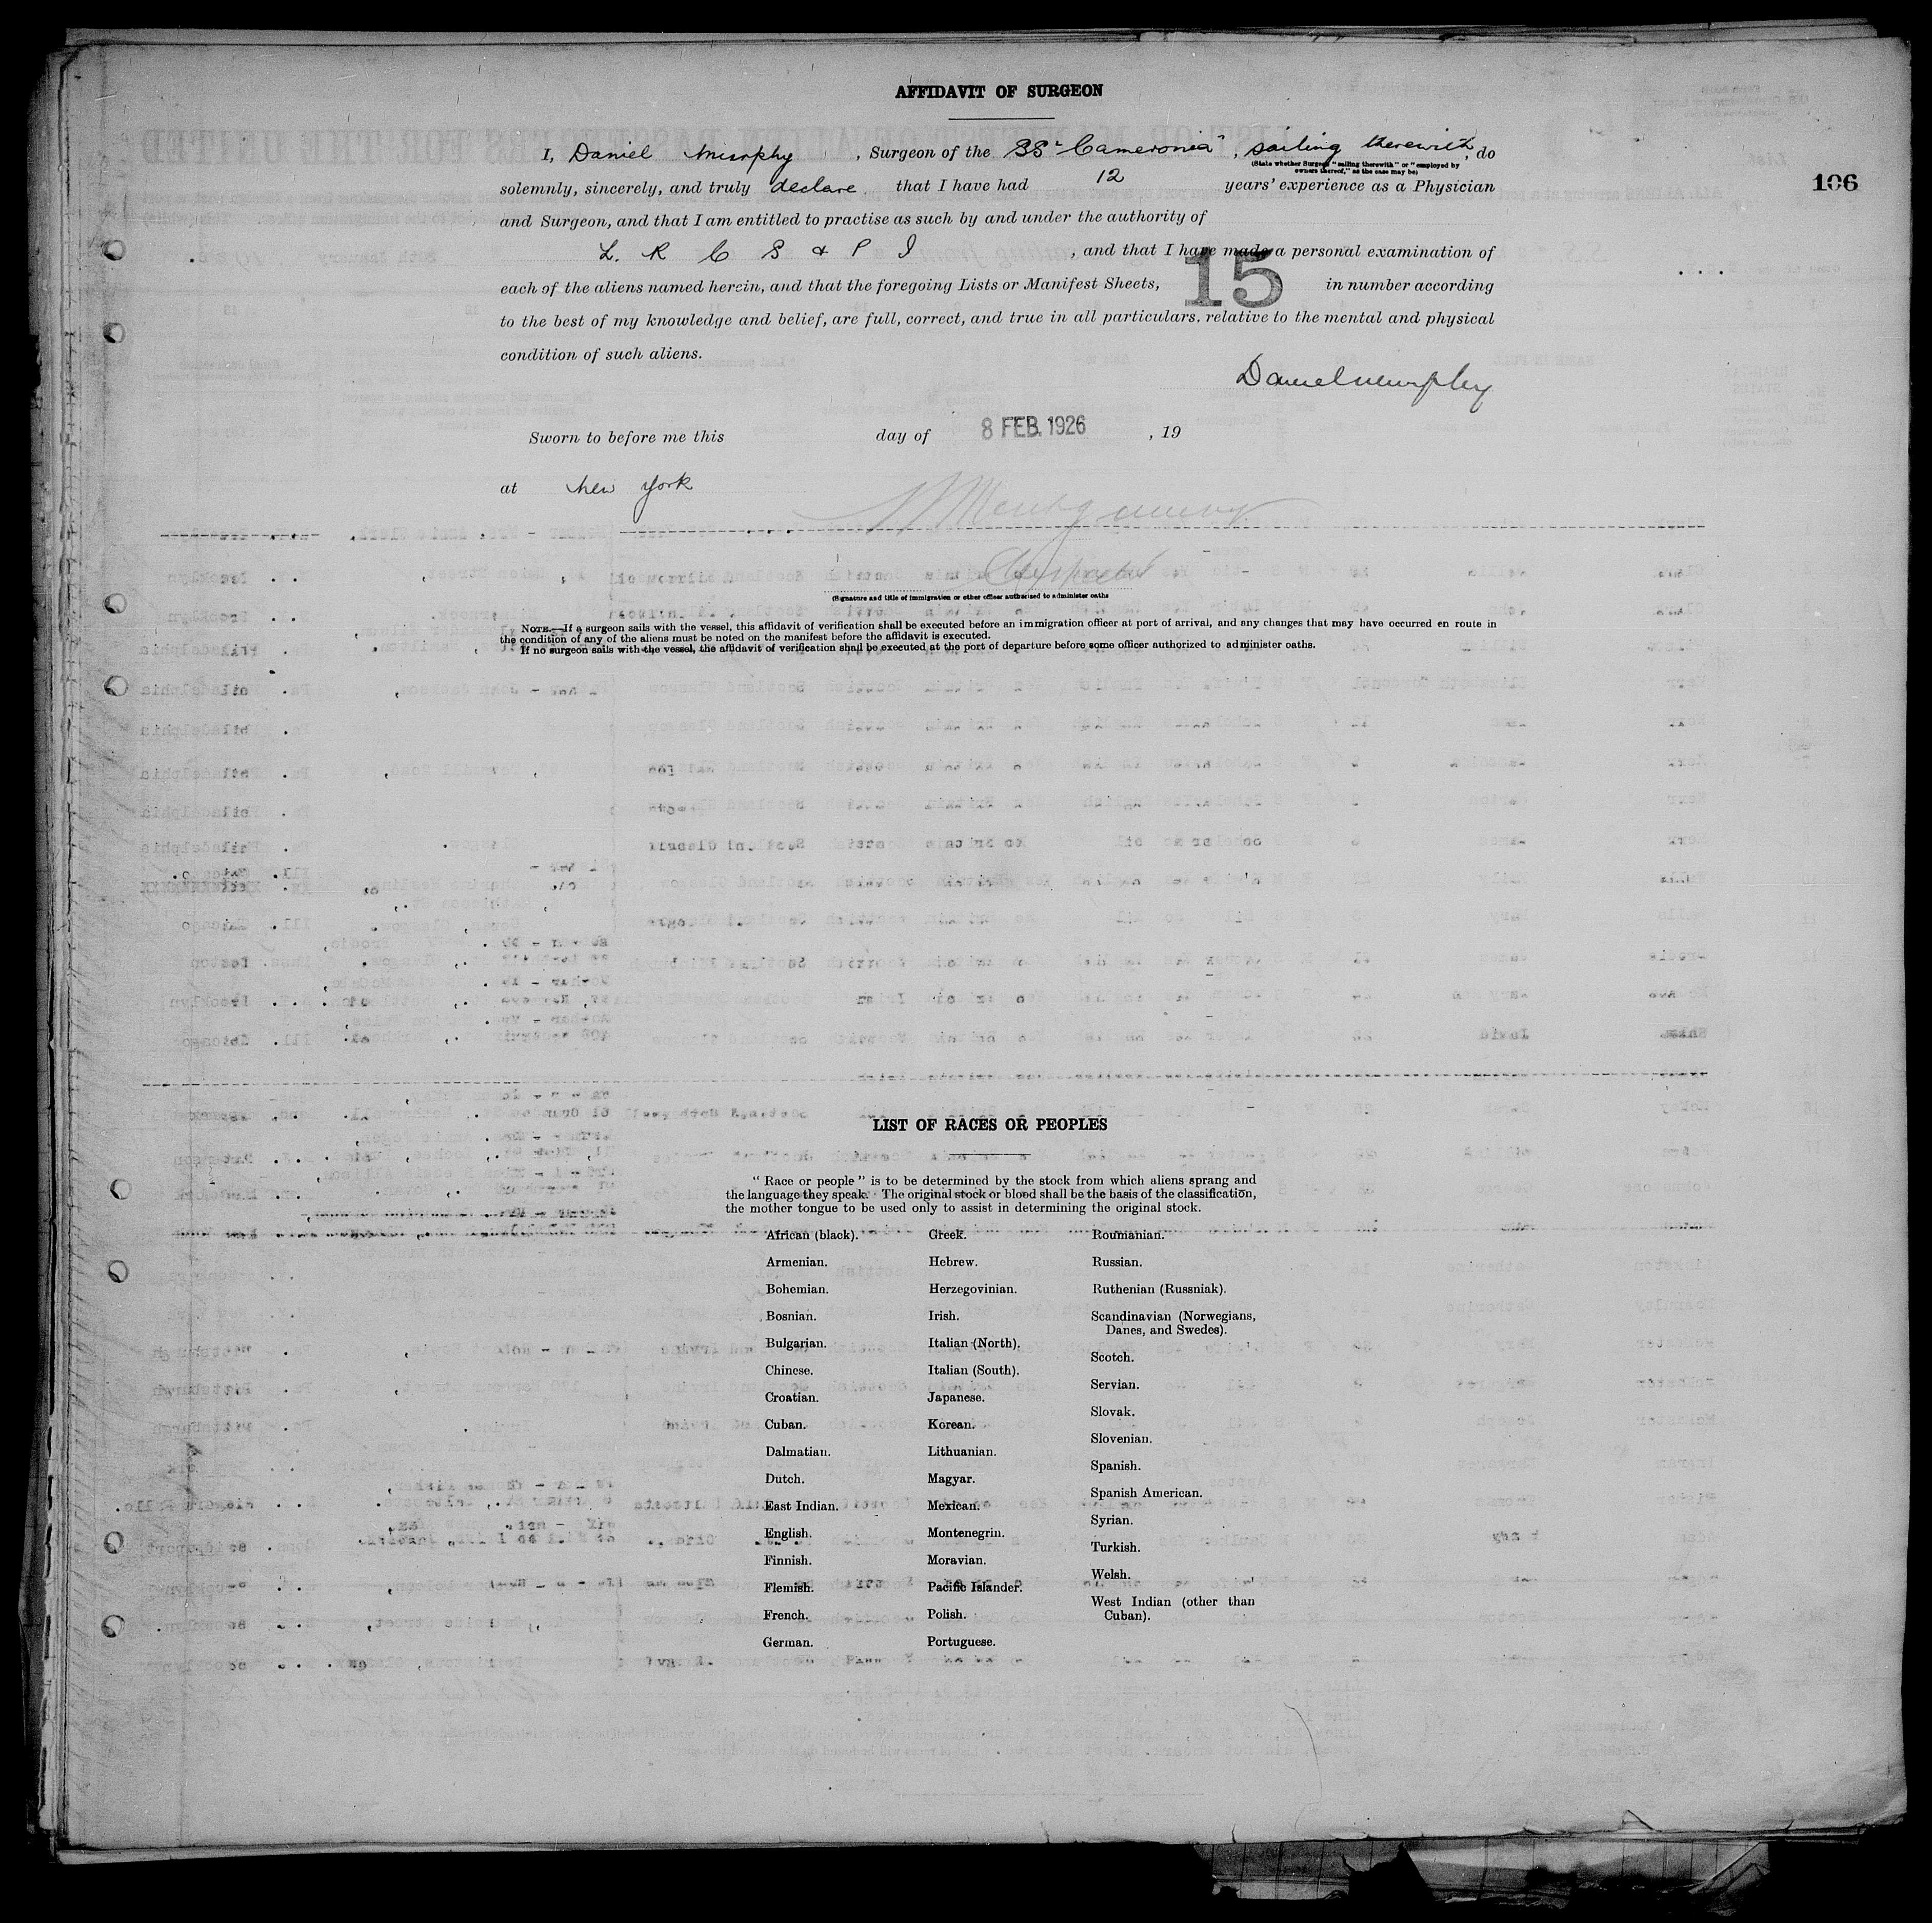 AFFIDAVIT OF SURGEON
106
I, Daniel Murphy, Surgeon of the SS "Cameronia", sailing therewith, do
(State whether Surgeon "sailing therewith" or "employed by
owners thereof," as the case may be)
solemnly, sincerely, and truly declare that I have had 12 years' experience as a Physician
and Surgeon, and that I am entitled to practise as such by and under the authority of
L. R C S & P I, and that I have made a personal examination of
each of the aliens named herein, and that the foregoing Lists or Manifest Sheets, 15 in number according
to the best of my knowledge and belief, are full, correct, and true in all particulars. relative to the mental and physical
condition of such aliens.
Daniel Murphy
Sworn to before me this day of 8 FEB. 1926, 19
at New York
Montgomery
(Signature and title of immigration or other officer authorised to administer oaths
NOTE.—If a surgeon sails with the vessel, this affidavit of verification shall be executed before an immigration officer at port of arrival, and any changes that may have occurred en route in
the condition of any of the aliens must be noted on the manifest before the affidavit is executed.
If no surgeon sails with the vessel, the affidavit of verification shall be executed at the port of departure before some officer authorized to administer oaths.
LIST OF RACES OR PEOPLES
"Race or people" is to be determined by the stock from which aliens sprang and
the language they speak. The original stock or blood shall be the basis of the classification,
the mother tongue to be used only to assist in determining the original stock.
African (black).
Armenian.
Bohemian.
Bosnian.
Bulgarian.
Chinese.
Croatian.
Cuban.
Dalmatian.
Dutch.
East Indian.
English.
Finnish.
Flemish.
French.
German.
Greek.
Hebrew.
Herzegovinian.
Irish.
Italian (North).
Italian (South).
Japanese.
Korean.
Lithuanian.
Magyar.
Mexican.
Montenegrin.
Moravian.
Pacific Islander.
Polish.
Portuguese.
Roumanian.
Russian.
Ruthenian (Russniak).
Scandinavian (Norwegians,
Danes, and Swedes).
Scotch.
Servian.
Slovak.
Slovenian.
Spanish.
Spanish American.
Syrian.
Turkish.
Welsh.
West Indian (other than
Cuban).